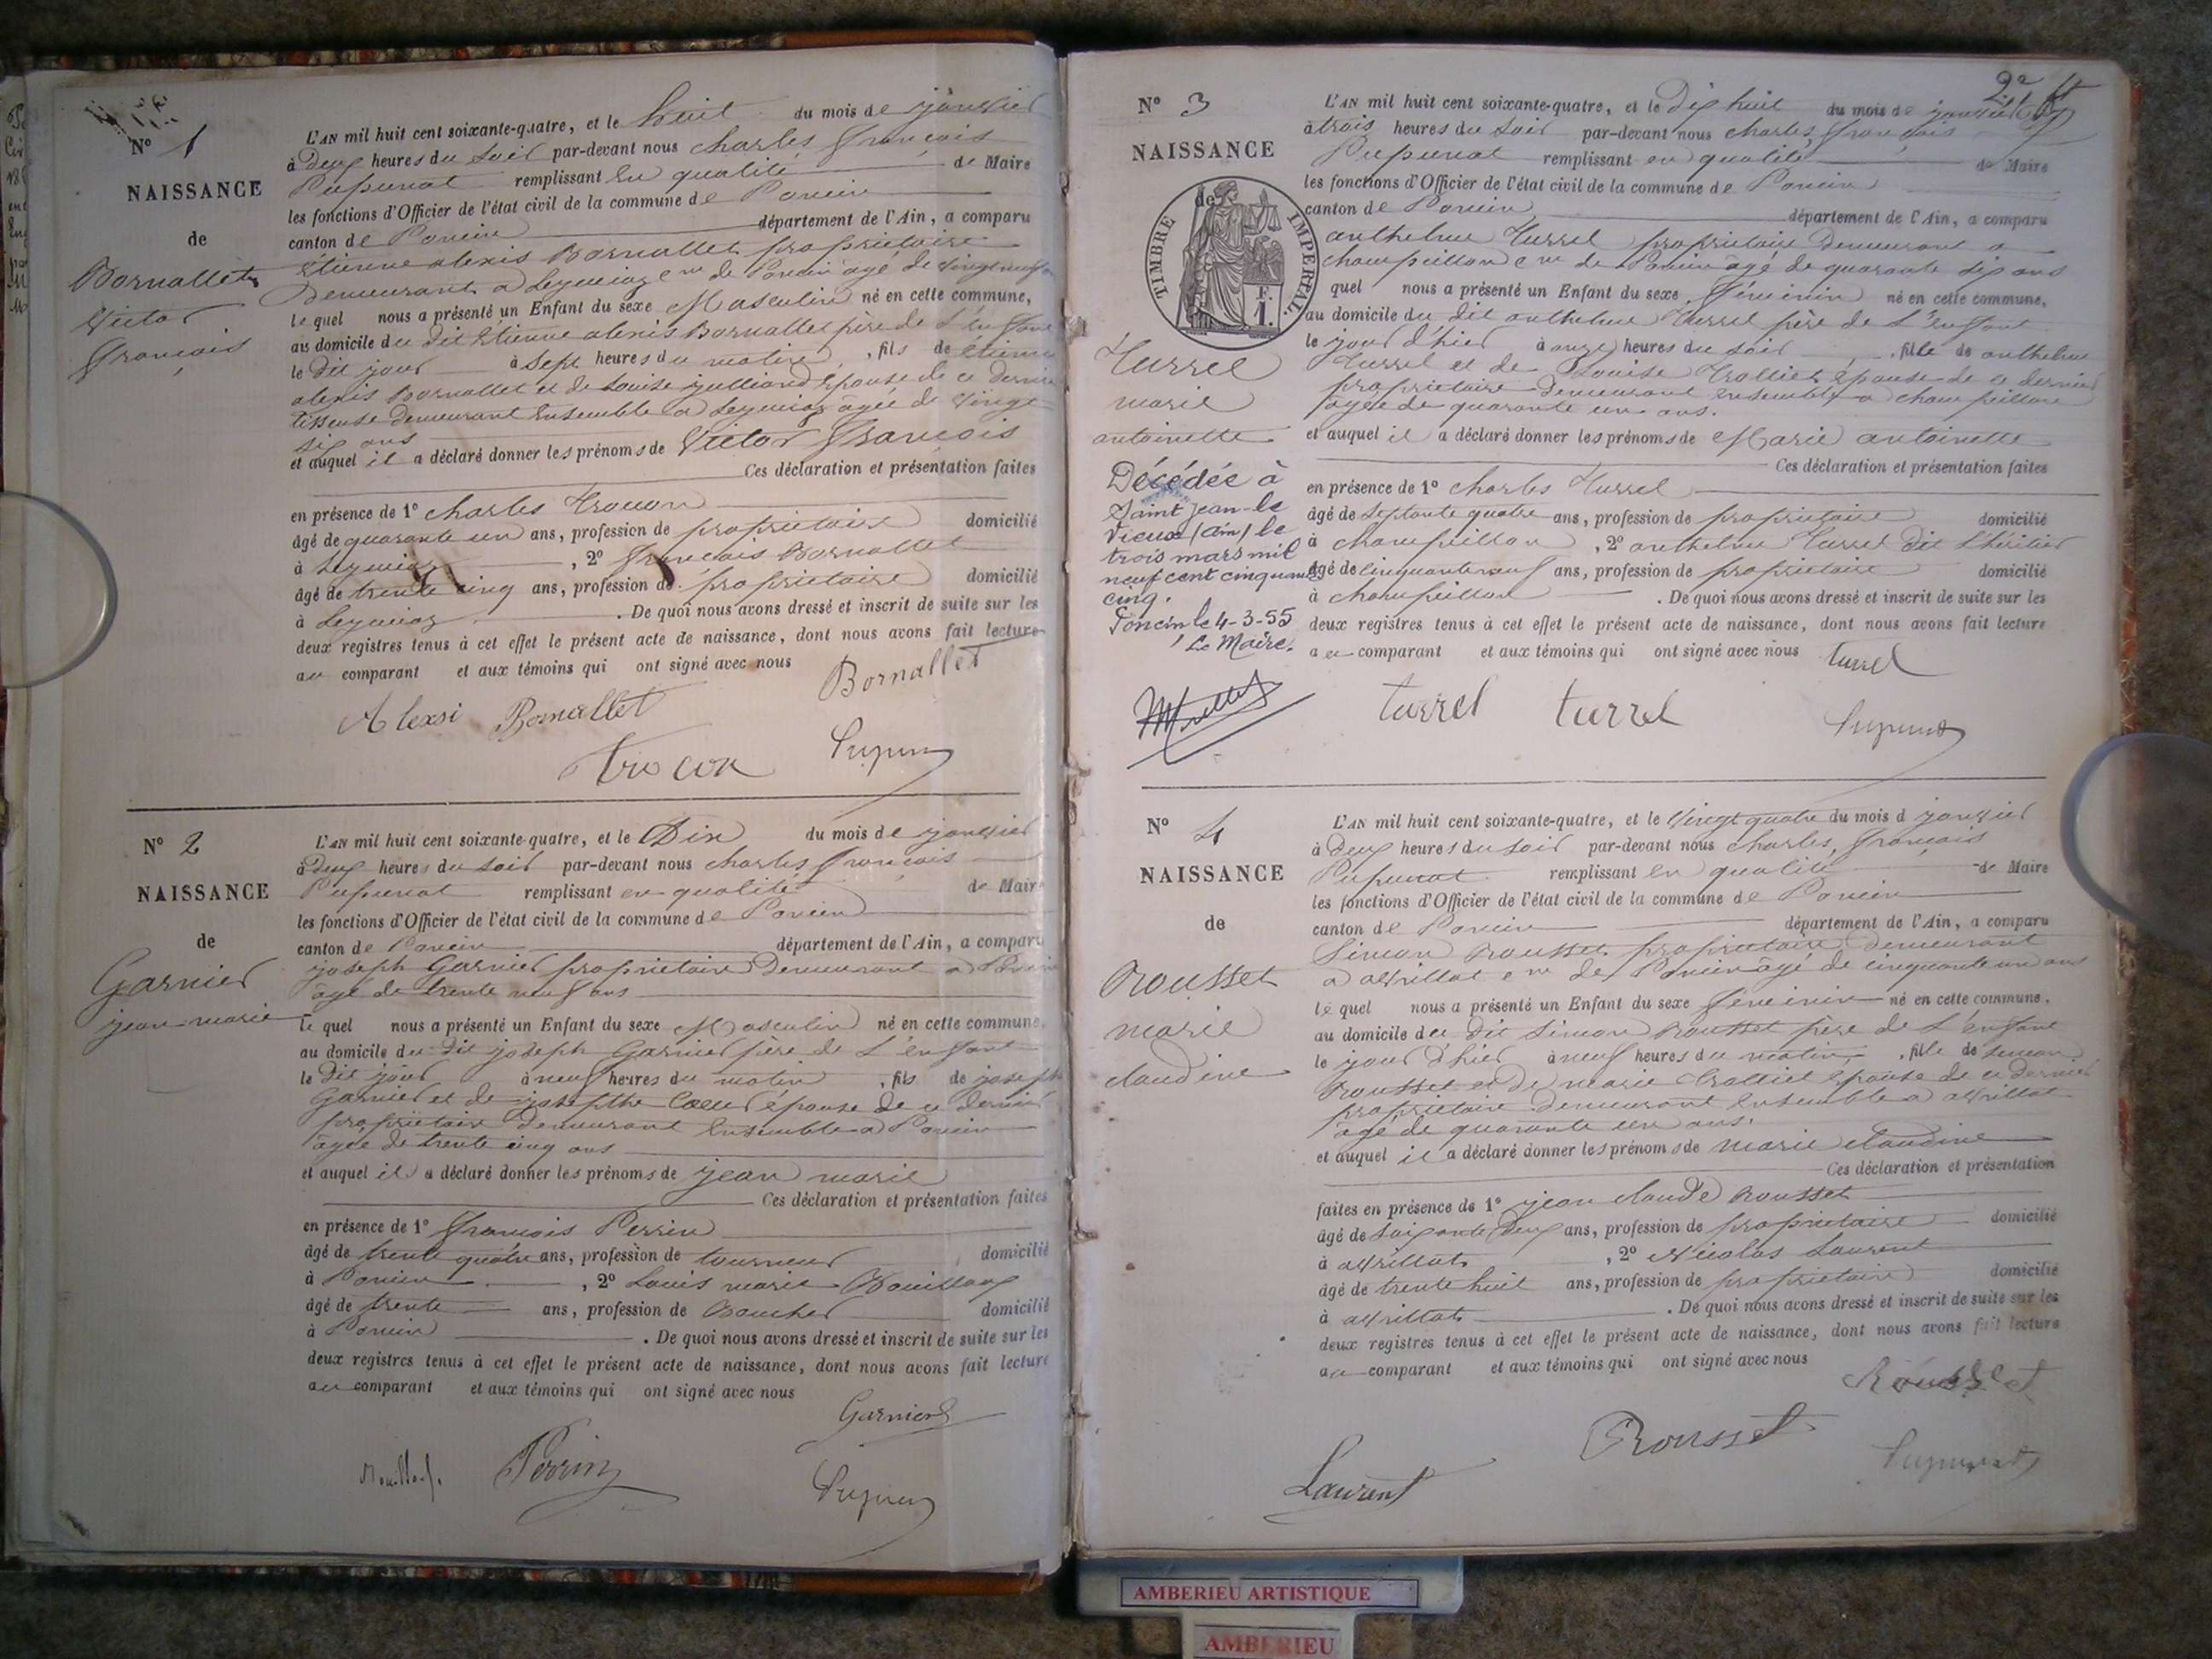 N° 1
NAISSANCE
de
Bornallet
Victor
françois
L'AN mil huit cent soixante-quatre, et le huit du mois de janvier
à Deux heures du soir par-devant nous charles françois
Pupunat remplissant en qualité de Maire
les fonctions d'Officier de l'état civil de la commune de Poncin
canton de Poncin département de l'Ain, a comparu
Etienne alexis Bornallet propriétaire
Demeurant a Leymiaz cne de Poncin âgé de vingt neuf
le quel nous a présenté un Enfant du sexe Masculin né en cette commune,
au domicile du dit Etienne alexis Bornallet père de L'enfant
le dit jour à Sept heures du matin, fils de Etienne
alexis Bornallet et de Louise julliand épouse de ce dernier
tisseuse demeurant Ensemble a Leymiaz âgée de vingt
six ans
et auquel il a déclaré donner les prénoms de Victor François
Ces déclaration et présentation faites
en présence de 1° charles trocon
âgé de quarante un ans, profession de propriétaire domicilié
à Leymiaz, 2° françois Bornallet
âgé de trente cinq ans, profession de propriétaire domicilié
à Leymiaz. De quoi nous avons dressé et inscrit de suite sur les
deux registres tenus à cet effet le présent acte de naissance, dont nous avons fait lecture
au comparant et aux témoins qui ont signé avec nous
Bornallet
Alexsi Bornallet
trocon Pupun
N° 2
NAISSANCE
de
Garnier
jean-marie
L'AN mil huit cent soixante-quatre, et le Dix du mois de janvier
à deux heures du soir par-devant nous charles françois
Pupunat remplissant en qualité de Maire
les fonctions d'Officier de l'état civil de la commune de Poncin
canton de Poncin département de l'Ain, a comparu
joseph Garnier propriétaire Demeurant a Poncin
âgé de trente neuf ans
le quel nous a présenté un Enfant du sexe Masculin né en cette commune,
au domicile du dit joseph Garnier père de L'enfant
le dit jour à neuf heures du matin, fils de joseph
Garnier et de josepthe Coeur épouse de ce dernier
propriétaire Demeurant Ensemble a Poncin
âgée de trente cinq ans
et auquel il a déclaré donner les prénoms de jean marie
Ces déclaration et présentation faites
en présence de 1° françois Perrin
âgé de trente quatre ans, profession de tourneur domicilié
à Poncin, 2° Louis marie
âgé de trente ans, profession de Boucher domicilié
à Poncin. De quoi nous avons dressé et inscrit de suite sur les
deux registres tenus à cet effet le présent acte de naissance, dont nous avons fait lecture
au comparant et aux témoins qui ont signé avec nous
Garnier
Perrin
Pupun
2e
N° 3
NAISSANCE
de
TIMBRE IMPERIAL.
F.
1.
turrel
marie
antoinette
Décédée à
Saint jean-le
Vieux (Ain) le
trois mars mil
neuf cent cinquante
cinq.
Poncin le 4-3-55
Le Maire.
L'AN mil huit cent soixante-quatre, et le Dix huit du mois de janvier
à trois heures du soir par-devant nous charles, françois
Pupunat remplissant en qualité de Maire
les fonctions d'Officier de l'état civil de la commune de Poncin
canton de Poncin département de l'Ain, a comparu
anthelme turrel propriétaire Demeurant a
champeillon cne de Poncin âgé de quarante six ans
quel nous a présenté un Enfant du sexe féminin né en cette commune,
au domicile du dit anthelme turrel père de L'enfant
le jour d'hier à onze heures du soir, fille de anthelme
turrel et de Louise trolliet épouse de ce dernier
propriétaire Demeurant ensemble a champeillon
âgée de quarante un ans.
et auquel il a déclaré donner les prénoms de Marie antoinette
Ces déclaration et présentation faites
en présence de 1° charles turrel
âgé de septante quatre ans, profession de propriétaire domicilié
à champeillon, 2° anthelme turrel dit L'héritier
âgé de cinquante neuf ans, profession de propriétaire domicilié
à champeillon. De quoi nous avons dressé et inscrit de suite sur les
deux registres tenus à cet effet le présent acte de naissance, dont nous avons fait lecture
au comparant et aux témoins qui ont signé avec nous turrel
turrel turrel
Pupunat
N° 4
NAISSANCE
de
Rousset
marie
claudine
L'AN mil huit cent soixante-quatre, et le vingt quatre du mois d janvier
à deux heures du soir par-devant nous charles, françois
Pupunat remplissant en qualité de Maire
les fonctions d'Officier de l'état civil de la commune de Poncin
canton de Poncin département de l'Ain, a comparu
Simon Rousset propriétaire Demeurant
a avrillat cne de Poncin âgé de cinquante un ans
le quel nous a présenté un Enfant du sexe féminin né en cette commune,
au domicile du dit Simon Rousset père de L'enfant
le jour d'hier à neuf heures du matin, fille de simon
Rousset et de marie trolliet épouse de ce dernier
propriétaire Demeurant Ensemble a avrillat
âgé de quarante un ans.
et auquel il a déclaré donner les prénoms de marie claudine
Ces déclaration et présentation
faites en présence de 1° jean claude Rousset
âgé de soixante deux ans, profession de propriétaire domicilié
à avrillat, 2° Nicolas Laurent
âgé de trente huit ans, profession de propriétaire domicilié
à avrillat. De quoi nous avons dressé et inscrit de suite sur les
deux registres tenus à cet effet le présent acte de naissance, dont nous avons fait lecture
au comparant et aux témoins qui ont signé avec nous
Rousset
Rousset
Laurent
Pupunat
AMBERIEU ARTISTIQUE
AMBERIEU